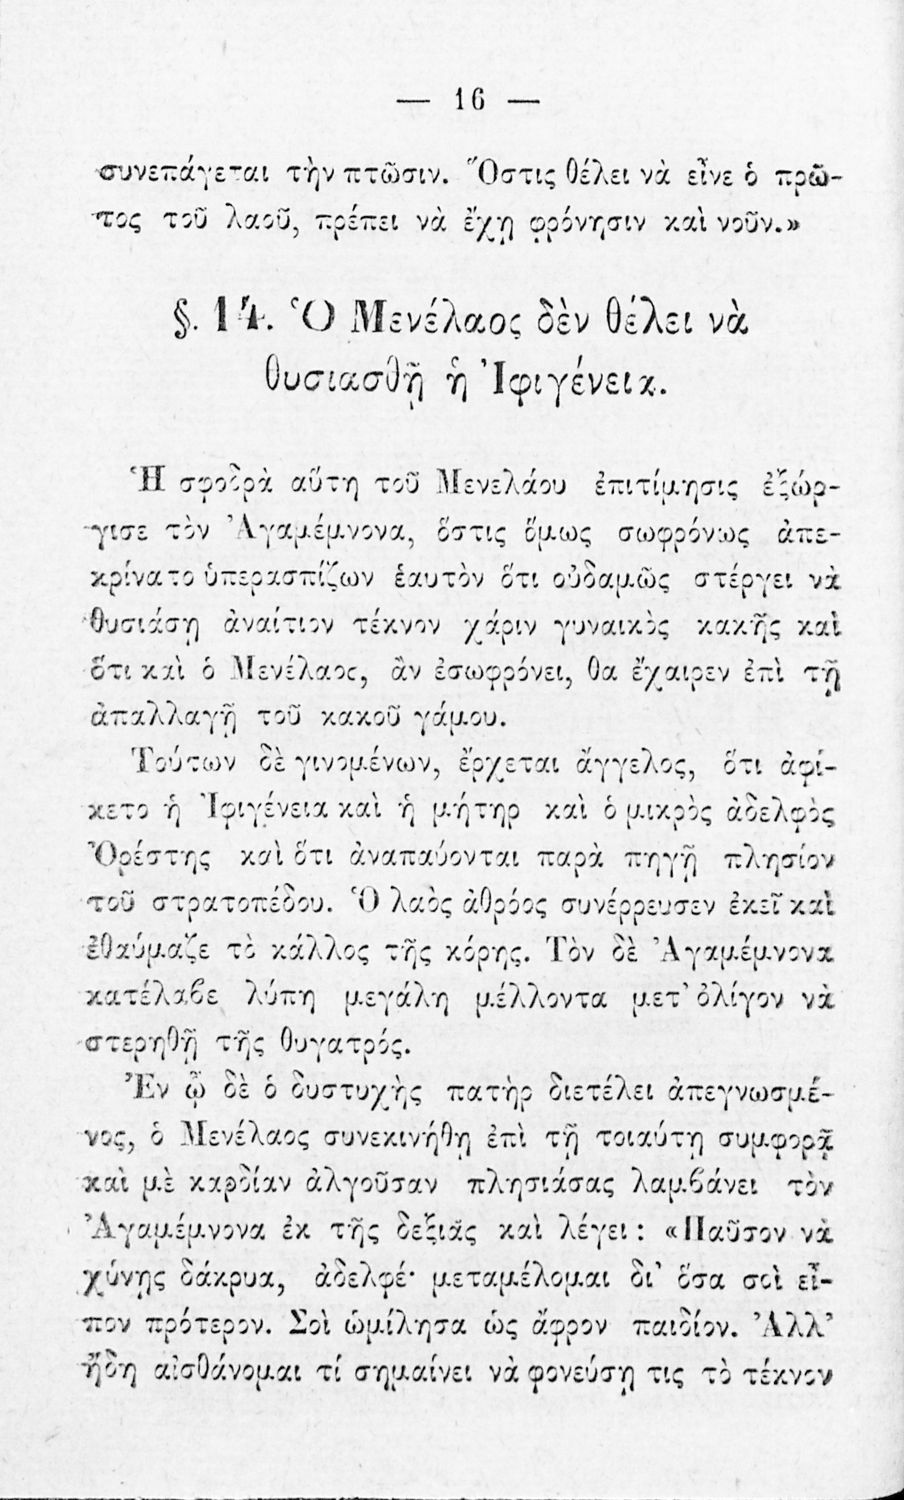 — 16 —
συνεπάγεται τὴν πτῶσιν. Ὅστις θέλει νὰ εἶνε ὁ πρῶ-
τος τοῦ λαοῦ, πρέπει νὰ ἔχῃ φρόνησιν καὶ νοῦν.»
§. 14. Ὁ Μενέλαος δὲν θέλει νὰ
θυσιασθῇ ἡ Ἰφιγένεια.
Ἡ σφοδρὰ αὕτη τοῦ Μενελάου ἐπιτίμησις ἐξώρ-
γισε τὸν Ἀγαμέμνονα, ὅστις ὅμως σωφρόνως ἀπε-
κρίνατο ὑπερασπίζων ἑαυτὸν ὅτι οὐδαμῶς στέργει νὰ
θυσιάσῃ ἀναίτιον τέκνον χάριν γυναικὸς κακῆς καὶ
ὅτι καὶ ὁ Μενέλαος, ἂν ἐσωφρόνει, θα ἔχαιρεν ἐπὶ τῇ
ἀπαλλαγῇ τοῦ κακοῦ γάμου.
Τούτων δὲ γινομένων, ἔρχεται ἄγγελος, ὅτι ἀφί-
κετο ἡ Ἰφιγένεια καὶ ἡ μήτηρ καὶ ὁ μικρὸς ἀδελφὸς
Ὀρέστης καὶ ὅτι ἀναπαύονται παρὰ πηγῇ πλησίον
τοῦ στρατοπέδου. Ὁ λαὸς ἀθρόος συνέρρευσεν ἐκεῖ καὶ
ἐθαύμαζε τὸ κάλλος τῆς κόρης. Τὸν δὲ Ἀγαμέμνονα
κατέλαβε λύπη μεγάλη μέλλοντα μετ' ὀλίγον νὰ
στερηθῇ τῆς θυγατρός.
Ἐν ᾧ δὲ ὁ δυστυχὴς πατὴρ διετέλει ἀπεγνωσμέ-
νος, ὁ Μενέλαος συνεκινήθη ἐπὶ τῇ τοιαύτῃ συμφορᾷ
καὶ μὲ καρδίαν ἀλγοῦσαν πλησιάσας λαμβάνει τὸν
Ἀγαμέμνονα ἐκ τῆς δεξιᾶς καὶ λέγει: «Παῦσον νὰ
χύνῃς δάκρυα, ἀδελφέ· μεταμέλομαι δι' ὅσα σοὶ εἶ-
πον πρότερον. Σοὶ ὡμίλησα ὡς ἄφρον παιδίον. Ἀλλ'
ἤδη αἰσθάνομαι τί σημαίνει νὰ φονεύσῃ τις τὸ τέκνον